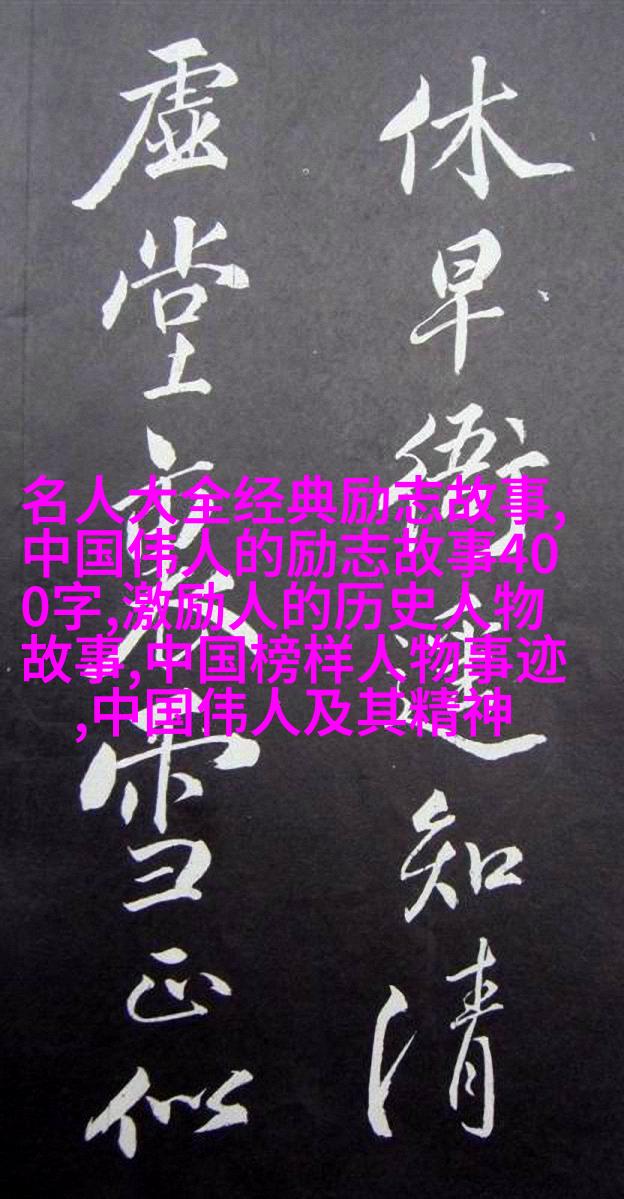 休早衙知清
虚堂雪正似
名人大全经典励志故事,
中国伟人的励志故事40
0字,激励人的历史人物
故事,中国榜样人物事迹
,中国伟人及其精神